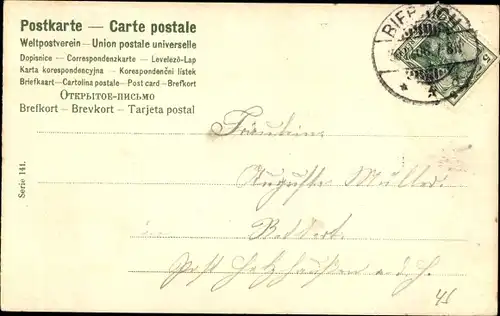 Postkarte — Carte postale
Weltpostverein — Union postale universelle
Dopisnice — Correspondenzkarte — Levelező-Lap
Karta korespondencyjna — Korespondenční lístek
Briefkaart — Cartolina postale — Post card — Brefkort
Открытое-письмо
Brefkort — Brevkort — Tarjeta postal
Fräulein
Auguste Müller.
in
Post Holzhausen a. d. H.
Serie 141.
5
45